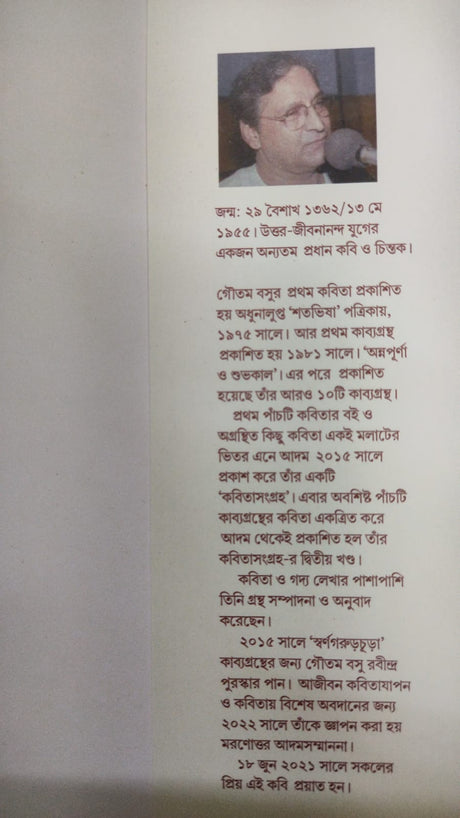 জন্ম: ২৯ বৈশাখ ১৩৬২/১৩ মে
১৯৫৫। উত্তর-জীবনানন্দ যুগের
একজন অন্যতম প্রধান কবি ও চিন্তক।
গৌতম বসুর প্রথম কবিতা প্রকাশিত
হয় অধুনালুপ্ত ‘শতভিষা’ পত্রিকায়,
১৯৭৫ সালে। আর প্রথম কাব্যগ্রন্থ
প্রকাশিত হয় ১৯৮১ সালে। ‘অন্নপূর্ণা
ও শুভকাল’। এর পরে প্রকাশিত
হয়েছে তাঁর আরও ১০টি কাব্যগ্রন্থ।
প্রথম পাঁচটি কবিতার বই ও
অগ্রন্থিত কিছু কবিতা একই মলাটের
ভিতর এনে আদম ২০১৫ সালে
প্রকাশ করে তাঁর একটি
‘কবিতাসংগ্রহ’। এবার অবশিষ্ট পাঁচটি
কাব্যগ্রন্থের কবিতা একত্রিত করে
আদম থেকেই প্রকাশিত হল তাঁর
কবিতাসংগ্রহ-র দ্বিতীয় খণ্ড।
কবিতা ও গদ্য লেখার পাশাপাশি
তিনি গ্রন্থ সম্পাদনা ও অনুবাদ
করেছেন।
২০১৫ সালে ‘স্বর্ণগরুড়চূড়া’
কাব্যগ্রন্থের জন্য গৌতম বসু রবীন্দ্র
পুরস্কার পান। আজীবন কবিতাযাপন
ও কবিতায় বিশেষ অবদানের জন্য
২০২২ সালে তাঁকে জ্ঞাপন করা হয়
মরণোত্তর আদমসম্মাননা।
১৮ জুন ২০২১ সালে সকলের
প্রিয় এই কবি প্রয়াত হন।